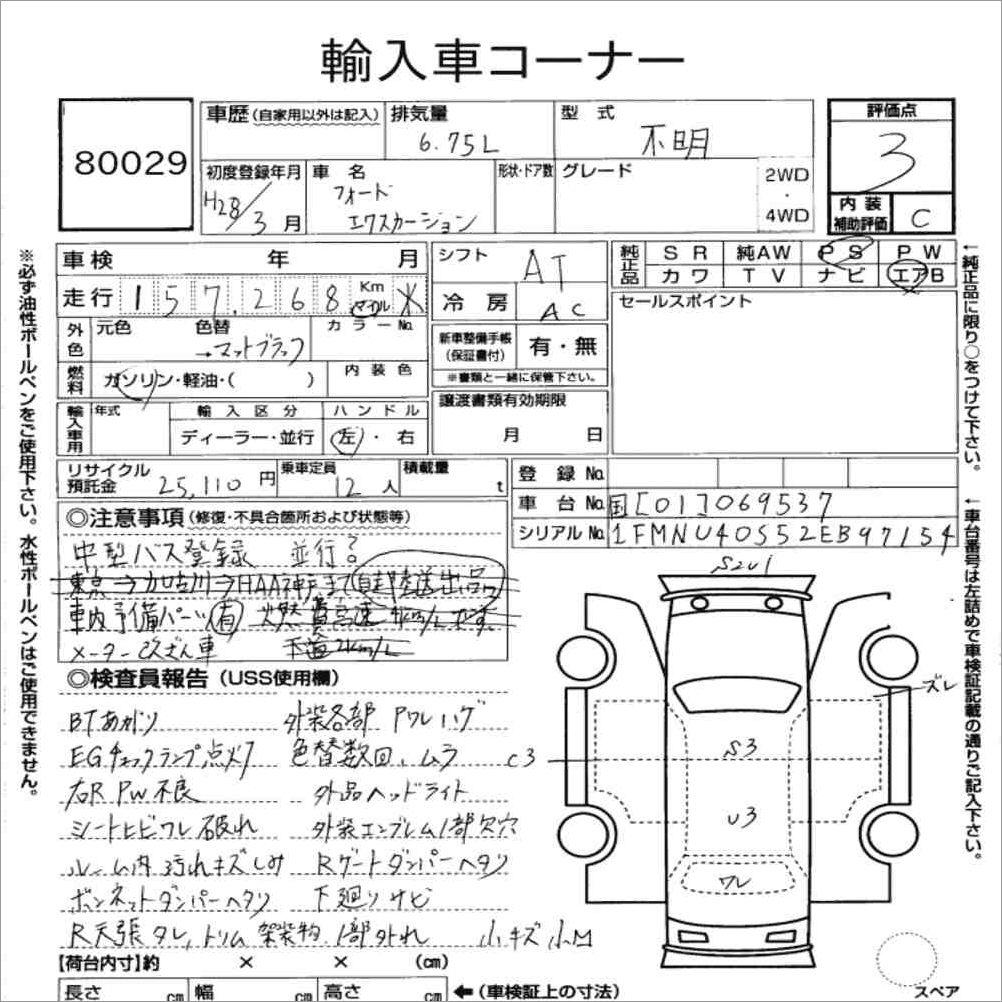 輸入車コーナー
80029
車歴(自家用以外は記入) 排気量 型式 評価点
6.75L 不明 3
初度登録年月 車名 形状・ドア数 グレード 2WD・4WD
H28/3月 フォード
エクスカーション
内装補助評価 C
※必ず油性ボールペンをご使用下さい。水性ボールペンはご使用できません。
車検 年 月
走行 157,268 Km マイル ※
外色 元色 色替 カラーNo.
→マットブラック
燃料 ガソリン・軽油・( ) 内装色
輸入車用 年式 輸入区分 ハンドル
ディーラー・並行 左・右
シフト AT
冷房 AC
新車整備手帳(保証書付) 有・無
※書類と一緒に保管下さい。
譲渡書類有効期限
月 日
純正品 SR 純AW PS PW
カワ TV ナビ エアB
セールスポイント
←純正品に限り○をつけて下さい。
リサイクル預託金 25,110円 乗車定員 12人 積載量 t
登録No.
車台No. 国[01]069537
シリアルNo. 1FMNU40S52EB97154
←車台番号は左詰めで車検証記載の通りご記入下さい。
◎注意事項(修復・不具合箇所および状態等)
中型バス登録 並行?
東京→加古川→HAA神戸まで自走陸送出品
車内予備パーツ有 燃費高速4km/Lです。
メーター改ざん車 下道2km/L
◎検査員報告(USS使用欄)
BTあがり 外装各部 Pワレハゲ
EGチェックランプ点灯 色替数回、ムラ
右R PW不良 外品ヘッドライト
シートヒビワレ破れ 外装エンブレム1部欠穴
ルーム内汚れキズしみ Rゲートダンパーヘタリ
ボンネットダンパーヘタリ 下廻りサビ
R天張タレ,トリム架装物1部外れ 小キズ小凹
S2U1
ズレ
C3
S3
U3
ワレ
スペア
【荷台内寸】約 × × (cm)
長さ cm 幅 cm 高さ cm ←(車検証上の寸法)